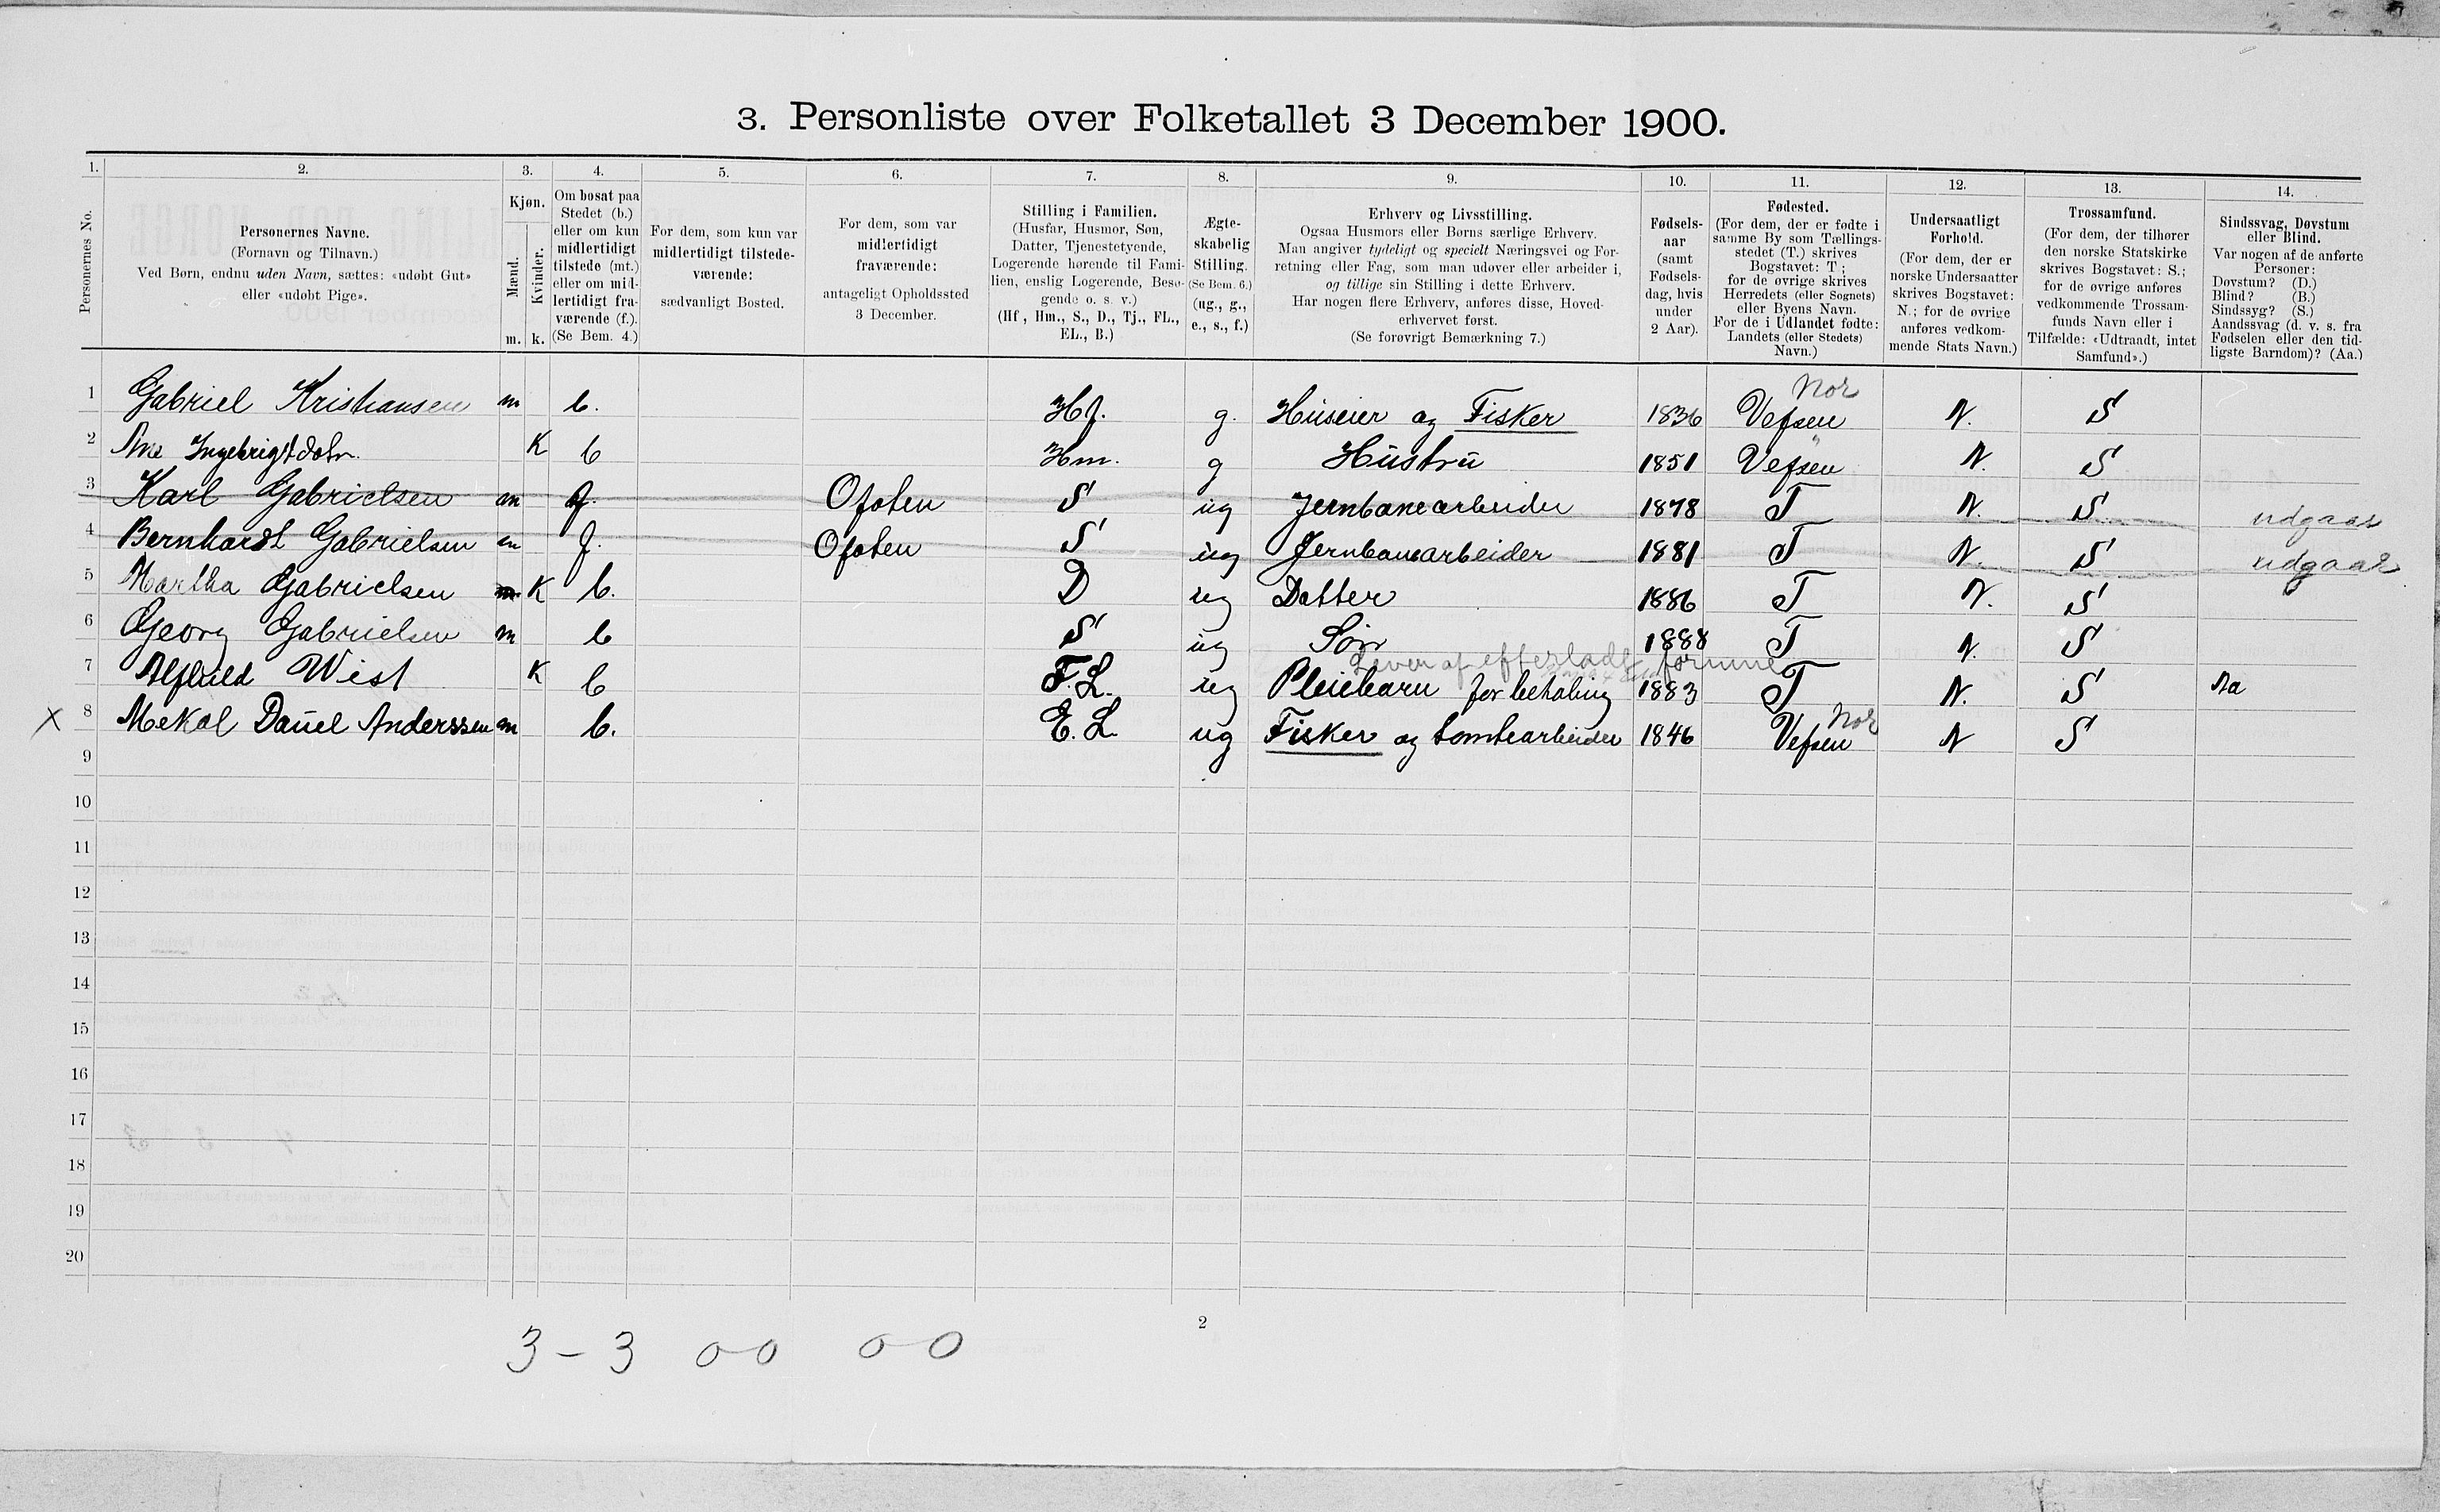 3. Personliste over Folketallet 3 December 1900.
1. 2. 3. 4. 5. 6. 7. 8. 9. 10. 11. 12. 13. 14.
Personernes No.
Personernes Navne.
(Fornavn og Tilnavn.)
Ved Børn, endnu uden Navn, sættes: «udøbt Gut»
eller «udøbt Pige».
Kjøn.
Mænd.
Kvinder.
m. k.
Om bosat paa
Stedet (b.)
eller om kun
midlertidigt
tilstede (mt.)
eller om mid-
lertidigt fra-
værende (f.).
(Se Bem. 4.)
For dem, som kun var
midlertidigt tilstede-
værende:
sædvanligt Bosted.
For dem, som var
midlertidigt
fraværende:
antageligt Opholdssted
3 December.
Stilling i Familien.
(Husfar, Husmor, Søn,
Datter, Tjenestetyende,
Logerende hørende til Fami-
lien, enslig Logerende, Besø-
gende o. s. v.)
(Hf, Hm., S., D., Tj., FL.,
EL., B.)
Ægte-
skabelig
Stilling.
(Se Bem. 6.)
(ug., g.,
e., s., f.)
Erhverv og Livsstilling.
Ogsaa Husmors eller Børns særlige Erhverv.
Man angiver tydeligt og specielt Næringsvei og For-
retning eller Fag, som man udøver eller arbeider i,
og tillige sin Stilling i dette Erhverv.
Har nogen flere Erhverv, anføres disse, Hoved-
erhvervet først.
(Se forøvrigt Bemærkning 7.)
Fødsels-
aar
(samt
Fødsels-
dag, hvis
under
2 Aar).
Fødested.
(For dem, der er fødte i
samme By som Tællings-
stedet (T.) skrives
Bogstavet: T;
for de øvrige skrives
Herredets (eller Sognets)
eller Byens Navn.
For de i Udlandet fødte:
Landets (eller Stedets)
Navn.)
Undersaatligt
Forhold.
(For dem, der er
norske Undersaatter
skrives Bogstavet:
N.; for de øvrige
anføres vedkom-
mende Stats Navn.)
Trossamfund.
(For dem, der tilhører
den norske Statskirke
skrives Bogstavet: S.;
for de øvrige anføres
vedkommende Trossam-
funds Navn eller i
Tilfælde: «Udtraadt, intet
Samfund».)
Sindssvag, Døvstum
eller Blind.
Var nogen af de anførte
Personer:
Døvstum? (D.)
Blind? (B.)
Sindssyg? (S.)
Aandssvag (d. v. s. fra
Fødselen eller den tid-
ligste Barndom)? (Aa.)
Nor
1 Gabriel Kristiansen m b. Hf. g. Huseier og Fisker 1836 Vefsen N. S
2 Ane Ingebrigtdatr. K b Hm. g Hustru 1851 Vefsen N. S
3 Karl Gabrielsen m f. Ofoten S ug Jernbanearbeider 1878 T N. S udgaar
4 Bernhardt Gabrielsen m f. Ofoten S ug Jernbanearbeider 1881 T N. S udgaar
5 Martha Gabrielsen m K b. D ug Datter 1886 T N. S
6 Georg Gabrielsen m b S ug Søn 1888 T N. S
Lever af efterladt formue
7 Alfhild Wist K b F.L. ug Pleiebarn for betaling 1883 T N. S Aa
Nor
X 8 Mekal Daniel Anderssen m b. E.L ug Fisker og tomtearbeider 1846 Vefsen N S
9
10
11
12
13
14
15
16
17
18
19
20
2
3 - 3 0-0 0-0